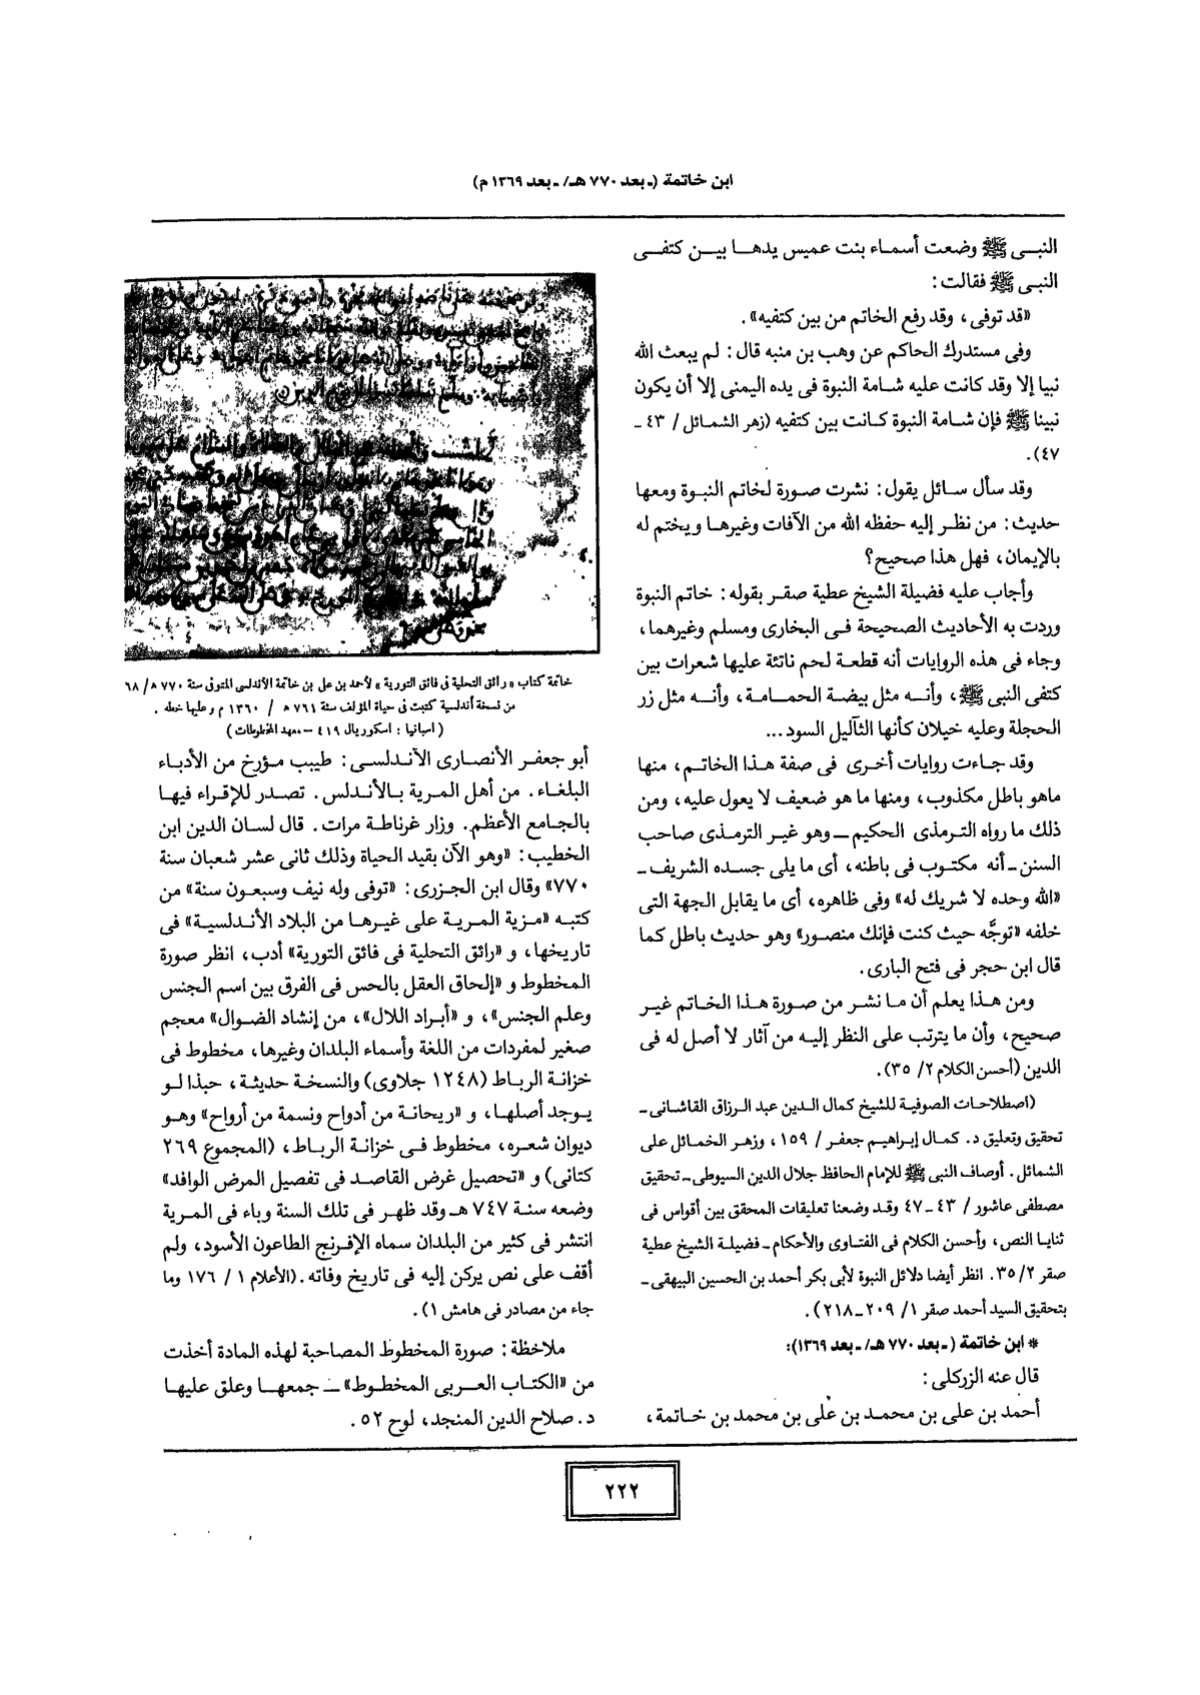 ابن خاتمة (ـ بعد ٧٧٠ هـ/ ـ بعد ١٣٦٩ م)
النبـى ﷺ وضعت أسماء بنت عميس يدهـا بيـن كتفـى
النبـى ﷺ فقالت :
«قد توفى ، وقد رفع الخاتم من بين كتفيه» .
وفى مستدرك الحاكم عن وهب بن منبه قال : لم يبعث الله
نبيا إلا وقد كانت عليه شامة النبوة فى يده اليمنى إلا أن يكون
نبينا ﷺ فإن شـامة النبوة كـانت بين كتفيه (زهر الشمـائل / ٤٣ ـ
٤٧) .
وقد سأل سـائل يقول : نشرت صـورة لخاتم النبـوة ومعها
حديث : من نظـر إليه حفظه الله من الآفات وغيرهـا ويختم له
بالإيمان ، فهل هذا صحيح؟
وأجاب عليه فضيلة الشيخ عطية صقـر بقوله : خاتم النبوة
وردت به الأحاديث الصحيحة فـى البخارى ومسلم وغيرهما ،
وجاء فى هذه الروايات أنه قطعـة لحم ناتئة عليها شعرات بين
كتفى النبى ﷺ ، وأنـه مثل بيضـة الحمـامـة ، وأنـه مثل زر
الحجلة وعليه خيلان كأنها الثآليل السود ...
وقد جـاءت روايات أخـرى فى صفة هـذا الخاتـم ، منها
ماهو باطل مكذوب ، ومنها ما هو ضعيف لا يعول عليه ، ومن
ذلك ما رواه التـرمذى الحكيم ـ وهو غيـر الترمـذى صاحب
السنن ـ أنه مكتـوب فى باطنه ، أى ما يلى جسـده الشريف ـ
«الله وحده لا شريك له» وفى ظاهره ، أى ما يقابل الجهة التى
خلفه «توجَّه حيث كنت فإنك منصـور» وهو حديث باطل كما
قال ابن حجر فى فتح البارى .
ومن هـذا يعلم أن مـا نشر من صـورة هـذا الخـاتم غيـر
صحيح ، وأن ما يترتب على النظر إليـه من آثار لا أصل له فى
الدين (أحسن الكلام ٢/ ٣٥) .
(اصطلاحـات الصوفيـة للشيخ كمـال الـدين عبد الـرزاق القاشـانى ـ
تحقيق وتعليق د. كمـال إبراهيـم جعفـر / ١٥٩ ، وزهـر الخمـائل على
الشمائل . أوصاف النبى ﷺ للإمام الحافظ جلال الدين السيوطى ـ تحقيق
مصطفى عاشور / ٤٣ ـ ٤٧ وقـد وضعنا تعليقات المحقق بين أقواس فى
ثنايـا النص ، وأحسن الكلام فى الفتاوى والأحكام ـ فضيلـة الشيخ عطية
صقر ٢/ ٣٥ . انظر أيضا دلائل النبوة لأبى بكر أحمد بن الحسين البيهقى ـ
بتحقيق السيد أحمد صقر ١/ ٢٠٩ ـ ٢١٨) .
* ابن خاتمة (ـ بعد ٧٧٠ هـ/ ـ بعد ١٣٦٩):
قال عنه الزركلى :
أحمد بن على بن محمـد بن على بن محمد بن خـاتمة ،
خاتمة كتاب « رائق التحلية فى فائق التورية » لأحمد بن على بن خاتمة الأندلسى المتوفى سنة ٧٧٠ ه / ٦٨
من نسخة أندلسية كتبت فى حياة المؤلف سنة ٧٦١ ه / ١٣٦٠ م وعليها خطه .
( اسبانيا : اسكوريال ٤١٩ – معهد المخطوطات )
أبو جعفـر الأنصـارى الأنـدلسـى : طبيب مـؤرخ من الأدبـاء
البلغـاء . من أهل المرية بـالأندلس . تصـدر للإقـراء فيهـا
بالجـامع الأعظم . وزار غرناطـة مرات . قال لسـان الدين ابن
الخطيب : «وهو الآن بقيد الحياة وذلك ثانى عشر شعبان سنة
٧٧٠» وقال ابن الجـزرى : «توفى وله نيف وسبعـون سنة» من
كتبـه «مـزية المـريـة على غيـرهـا من البلاد الأندلسيـة» فى
تاريخها ، و «رائق التحلية فى فائق التورية» أدب ، انظر صورة
المخطوط و «إلحاق العقل بالحس فى الفرق بين اسم الجنس
وعلم الجنس» ، و «أبـراد اللال» ، من إنشاد الضـوال» معجم
صغير لمفردات من اللغة وأسماء البلدان وغيرها ، مخطوط فى
خزانة الرباط (١٢٤٨ جلاوى) والنسخة حديثـة ، حبذا لـو
يـوجد أصلهـا ، و «ريحانـة من أدواح ونسمة من أرواح» وهـو
ديوان شعـره ، مخطوط فـى خزانـة الربـاط ، (المجموع ٢٦٩
كتانى) و «تحصيل غرض القاصـد فى تفصيل المرض الوافد»
وضعه سنـة ٧٤٧ هـ وقد ظهـر فى تلك السنة وباء فى المـرية
انتشر فى كثير من البلدان سماه الإفرنج الطاعون الأسود ، ولم
أقف على نص يركن إليه فى تاريخ وفاته . (الأعلام ١ / ١٧٦ وما
جاء من مصادر فى هامش ١) .
ملاحظة : صورة المخطوط المصاحبة لهذه المادة أخذت
من «الكتاب العـربى المخطـوط» ـ جمعهـا وعلق عليهـا
د. صلاح الدين المنجد ، لوح ٥٢ .
٢٢٢